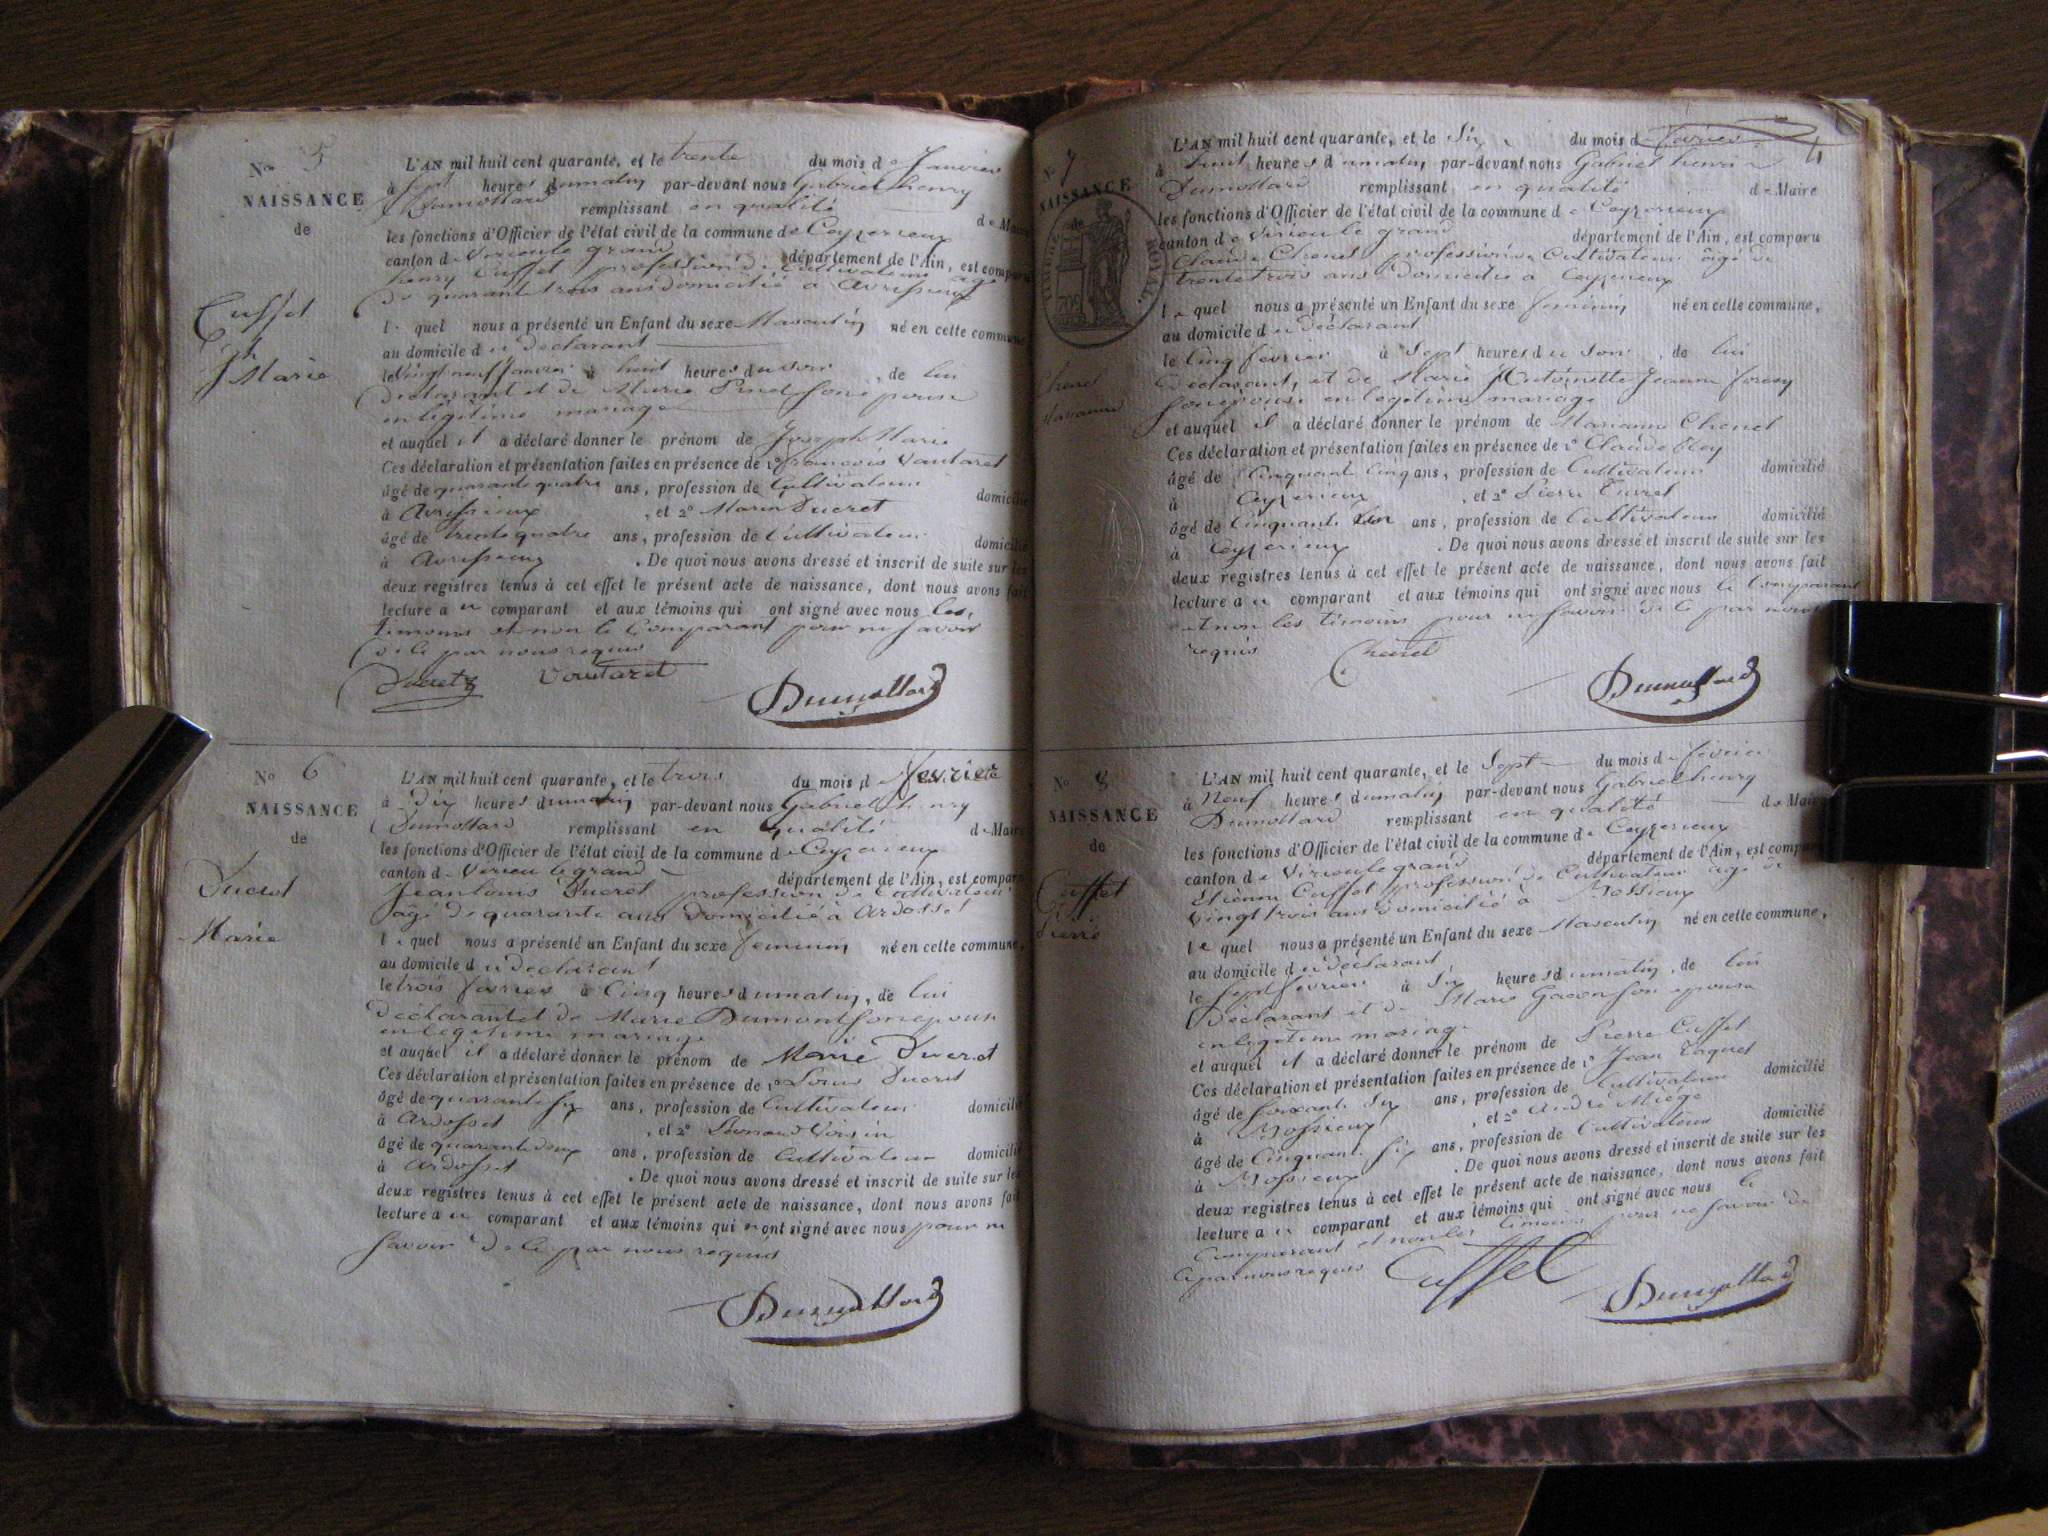 No 5
NAISSANCE
de
Cuffet
Jh Marie
L'AN mil huit cent quarante, et le trente du mois de Janvier
à sept heures du matin par-devant nous Gabriel henry
Dumollard remplissant en qualité de Maire
les fonctions d'Officier de l'état civil de la commune de Ceyzerieux
canton de Virieu le grand département de l'Ain, est comparu
henry Cuffet profession de Cultivateur âgé
de quarante trois ans domicilié à Avrissieux
lequel nous a présenté un Enfant du sexe Masculin né en cette commune
au domicile du déclarant
le vingt neuf Janvier à huit heures du soir, de lui
déclarant et de Marie son épouse
en légitime mariage
et auquel il a déclaré donner le prénom de Joseph Marie
Ces déclaration et présentation faites en présence de 1o francois Vautaret
âgé de quarante quatre ans, profession de Cultivateur domicilié
à Avrissieux, et 2o Marin Ducret
âgé de trente quatre ans, profession de Cultivateur domicilié
à Avrissieux. De quoi nous avons dressé et inscrit de suite sur les
deux registres tenus à cet effet le présent acte de naissance, dont nous avons fait
lecture au comparant et aux témoins qui ont signé avec nous les
temoins et non le Comparant pour ne savoir
de ce par nous requis
Ducret Voutaret Dumollard
No 6
NAISSANCE
de
Ducret
Marie
L'AN mil huit cent quarante, et le trois du mois de fevrier
à Dix heures du matin par-devant nous Gabriel henry
Dumollard remplissant en qualité de Maire
les fonctions d'Officier de l'état civil de la commune de Ceyzerieux
canton de Virieu le grand département de l'Ain, est comparu
Jean louis Ducret profession de Cultivateur
âgé de quarante ans domicilié à Ardosset
lequel nous a présenté un Enfant du sexe feminin né en cette commune,
au domicile du déclarant
le trois fevrier à Cinq heures du matin, de lui
déclarant et de Marie Dumont son épouse
en légitime mariage
et auquel il a déclaré donner le prénom de Marie Ducret
Ces déclaration et présentation faites en présence de 1o Louis Ducret
âgé de quarante six ans, profession de Cultivateur domicilié
à Ardosset, et 2o Voisin
âgé de quarante deux ans, profession de Cultivateur domicilié
à Ardosset. De quoi nous avons dressé et inscrit de suite sur les
deux registres tenus à cet effet le présent acte de naissance, dont nous avons fait
lecture au comparant et aux témoins qui n'ont signé avec nous pour ne
savoir de ce par nous requis
Dumollard
4
No 7
NAISSANCE
de
TIMBRE ROYAL
Chenet
Marianne
L'AN mil huit cent quarante, et le Six du mois de fevrier
à huit heures du matin par-devant nous Gabriel henri
Dumollard remplissant en qualité de Maire
les fonctions d'Officier de l'état civil de la commune de Ceyzerieux
canton de Virieu le grand département de l'Ain, est comparu
Claude Chenet profession de Cultivateur âgé de
trente trois ans domicilié à Ceyzerieux
lequel nous a présenté un Enfant du sexe feminin né en cette commune,
au domicile du déclarant
le Cinq février à Sept heures du soir, de lui
déclarant, et de Marie Antoinette Jeanne
son épouse en légitime mariage
et auquel il a déclaré donner le prénom de Marianne Chenet
Ces déclaration et présentation faites en présence de 1o Claude
âgé de Cinquante Cinq ans, profession de Cultivateur domicilié
à Ceyzerieux, et 2o Pierre
âgé de Cinquante ans, profession de Cultivateur domicilié
à Ceyzerieux. De quoi nous avons dressé et inscrit de suite sur les
deux registres tenus à cet effet le présent acte de naissance, dont nous avons fait
lecture au comparant et aux témoins qui ont signé avec nous le Comparant
et non les témoins pour ne savoir de ce par nous
requis
Chenet Dumollard
No 8
NAISSANCE
de
Cuffet
Pierre
L'AN mil huit cent quarante, et le Sept du mois de février
à Neuf heures du matin par-devant nous Gabriel henry
Dumollard remplissant en qualité de Maire
les fonctions d'Officier de l'état civil de la commune de Ceyzerieux
canton de Virieu le grand département de l'Ain, est comparu
Etienne Cuffet profession de Cultivateur âgé de
vingt trois ans domicilié à Mossieux
lequel nous a présenté un Enfant du sexe Masculin né en cette commune,
au domicile du déclarant
le Sept février à Six heures du matin, de lui
Déclarant et de Marie son épouse
en légitime mariage
et auquel il a déclaré donner le prénom de Pierre Cuffet
Ces déclaration et présentation faites en présence de 1o Jean
âgé de soixante Six ans, profession de Cultivateur domicilié
à Mossieux, et 2o André Miège
âgé de Cinquante Six ans, profession de Cultivateur domicilié
à Mossieux. De quoi nous avons dressé et inscrit de suite sur les
deux registres tenus à cet effet le présent acte de naissance, dont nous avons fait
lecture au comparant et aux témoins qui ont signé avec nous le
Comparant et non les témoins pour ne savoir de
ce par nous requis Cuffet Dumollard